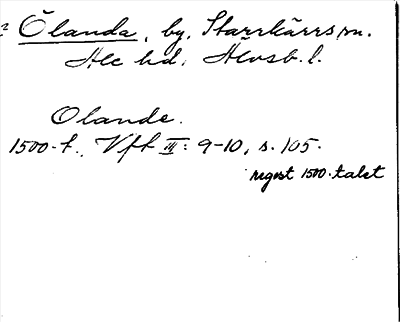 Ölanda, by, Starrkärrs sn.
Ale hd, Älvsb. l.
Olande.
1500-t., Vft III: 9-10, s. 105.
regest 1500-talet